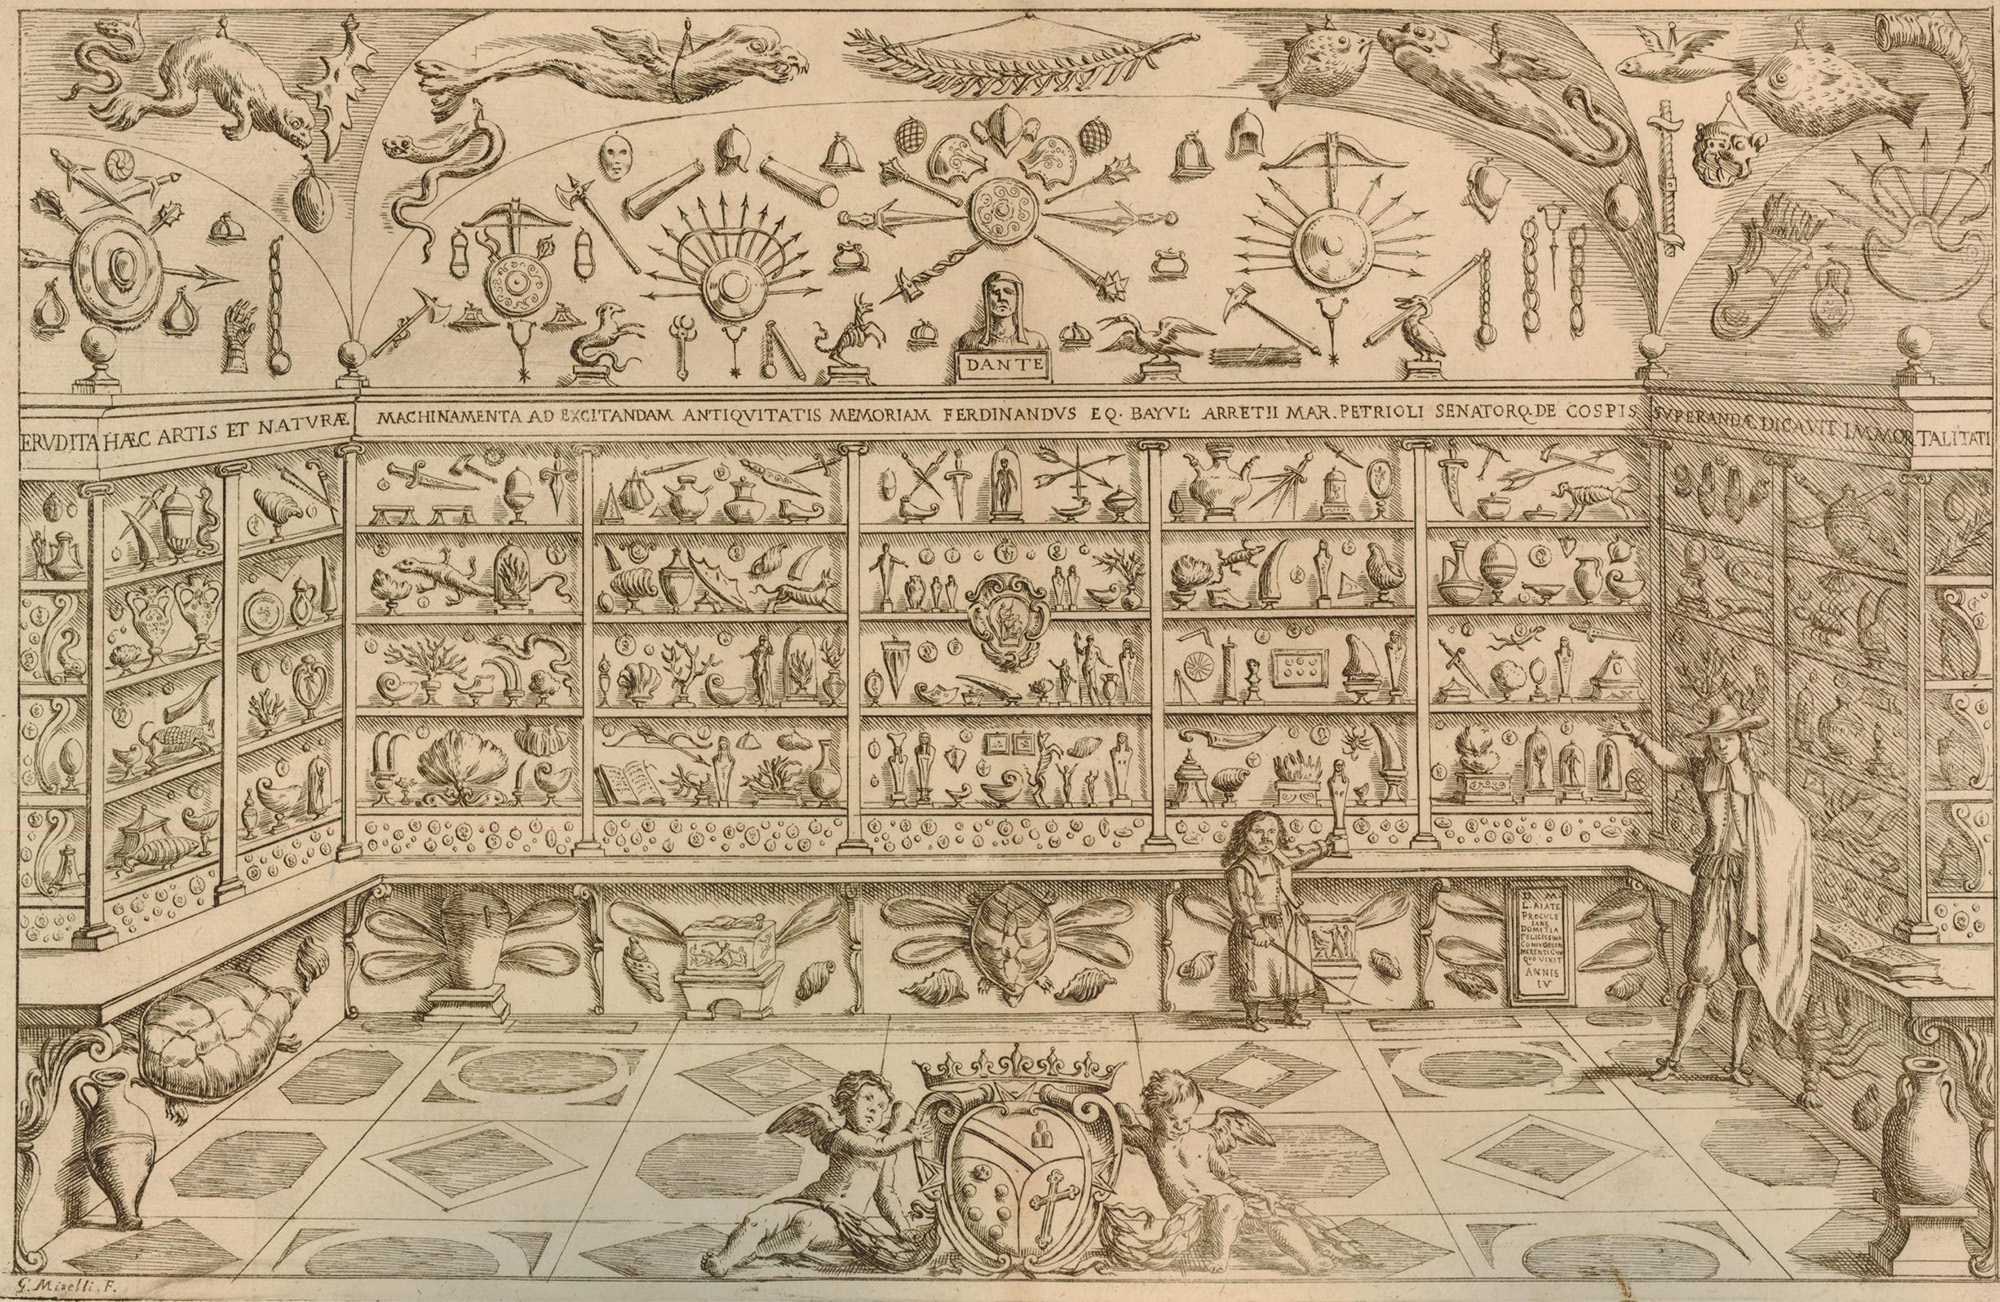 ERVDITA HÆC ARTIS ET NATVRÆ MACHINAMENTA AD EXCITANDAM ANTIQVITATIS MEMORIAM FERDINANDVS EQ. BAYVL: ARRETII MAR. PETRIOLI SENATORQ. DE COSPIS SVPERANDÆ DICAVIT IMMORTALITATI
DANTE
L. AIATE
PROCVLE
IANE
DOMETIA
FELICISSIMA
CONIVGE BEN
MERENTI CVM
QVO VIXIT
ANNIS
LV
G. Miselli, F.